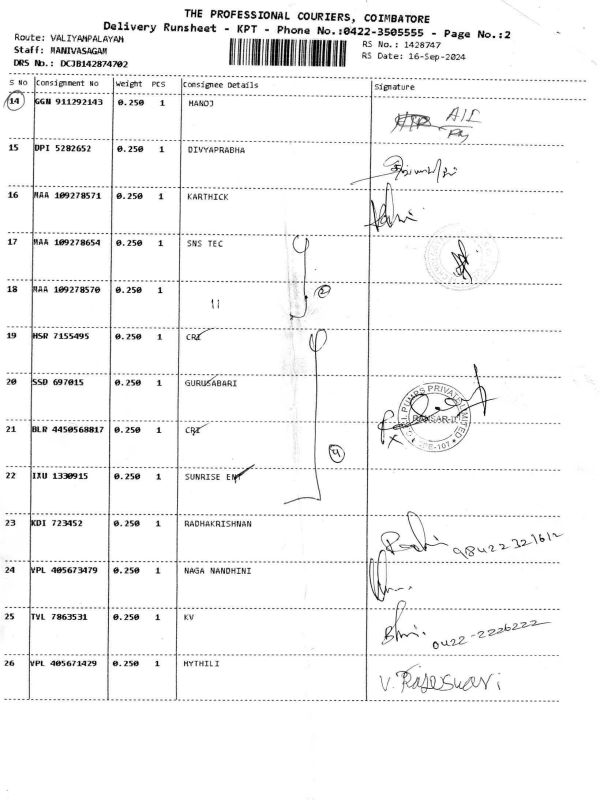 THE PROFESSIONAL COURIERS, COIMBATORE
Delivery Runsheet - KPT - Phone No.:0422-3505555 - Page No.:2
Route: VALIYAMPALAYAM
RS No.: 1428747
Staff: MANIVASAGAM
RS Date: 16-Sep-2024
DRS No.: DCJB142874702
S No Consignment No Weight PCS Consignee Details Signature
14 GGN 911292143 0.250 1 MANOJ
15 DPI 5282652 0.250 1 DIVYAPRABHA
16 MAA 109278571 0.250 1 KARTHICK
17 MAA 109278654 0.250 1 SNS TEC
18 MAA 109278570 0.250 1 11 2
19 HSR 7155495 0.250 1 CRI
20 SSD 697015 0.250 1 GURUSABARI
PUMPS PRIVATE LIMITED
21 BLR 4450568817 0.250 1 CRI 4
22 IXU 1330915 0.250 1 SUNRISE ENT
23 KDI 723452 0.250 1 RADHAKRISHNAN
24 VPL 405673479 0.250 1 NAGA NANDHINI
25 TVL 7863531 0.250 1 KV 0422-2226222
26 VPL 405671429 0.250 1 MYTHILI V. Rajeswari